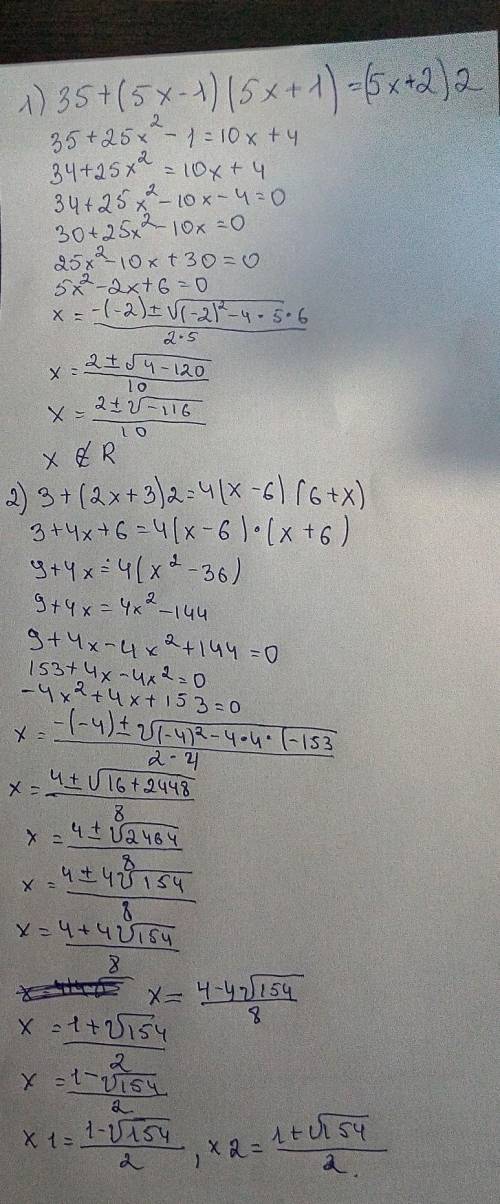 1) 35+(5x-1)(5x+1)=(5x+2)2
35+25x²-1=10x+4
34+25x²=10x+4
34+25x²-10x-4=0
30+25x²-10x=0
25x²-10x+30=0
5x²-2x+6=0
x=-(-2)±√(-2)²-4·5·6/2·5
x=2±√4-120/10
x=2±√-116/10
x∉R
2) 3+(2x+3)2=4(x-6)(6+x)
3+4x+6=4(x-6)·(x+6)
9+4x=4(x²-36)
9+4x=4x²-144
9+4x-4x²+144=0
153+4x-4x²=0
-4x²+4x+153=0
x=-(-4)±√(-4)²-4·4·(-153/2-4
x=4±√16+2448/8
x=4±√2464/8
x=4±4√154/8
x=4+4√154/8
x=4-4√154/8
x=1+√154/2
x=1-√154/2
x1=1-√154/2, x2=1+√154/2.